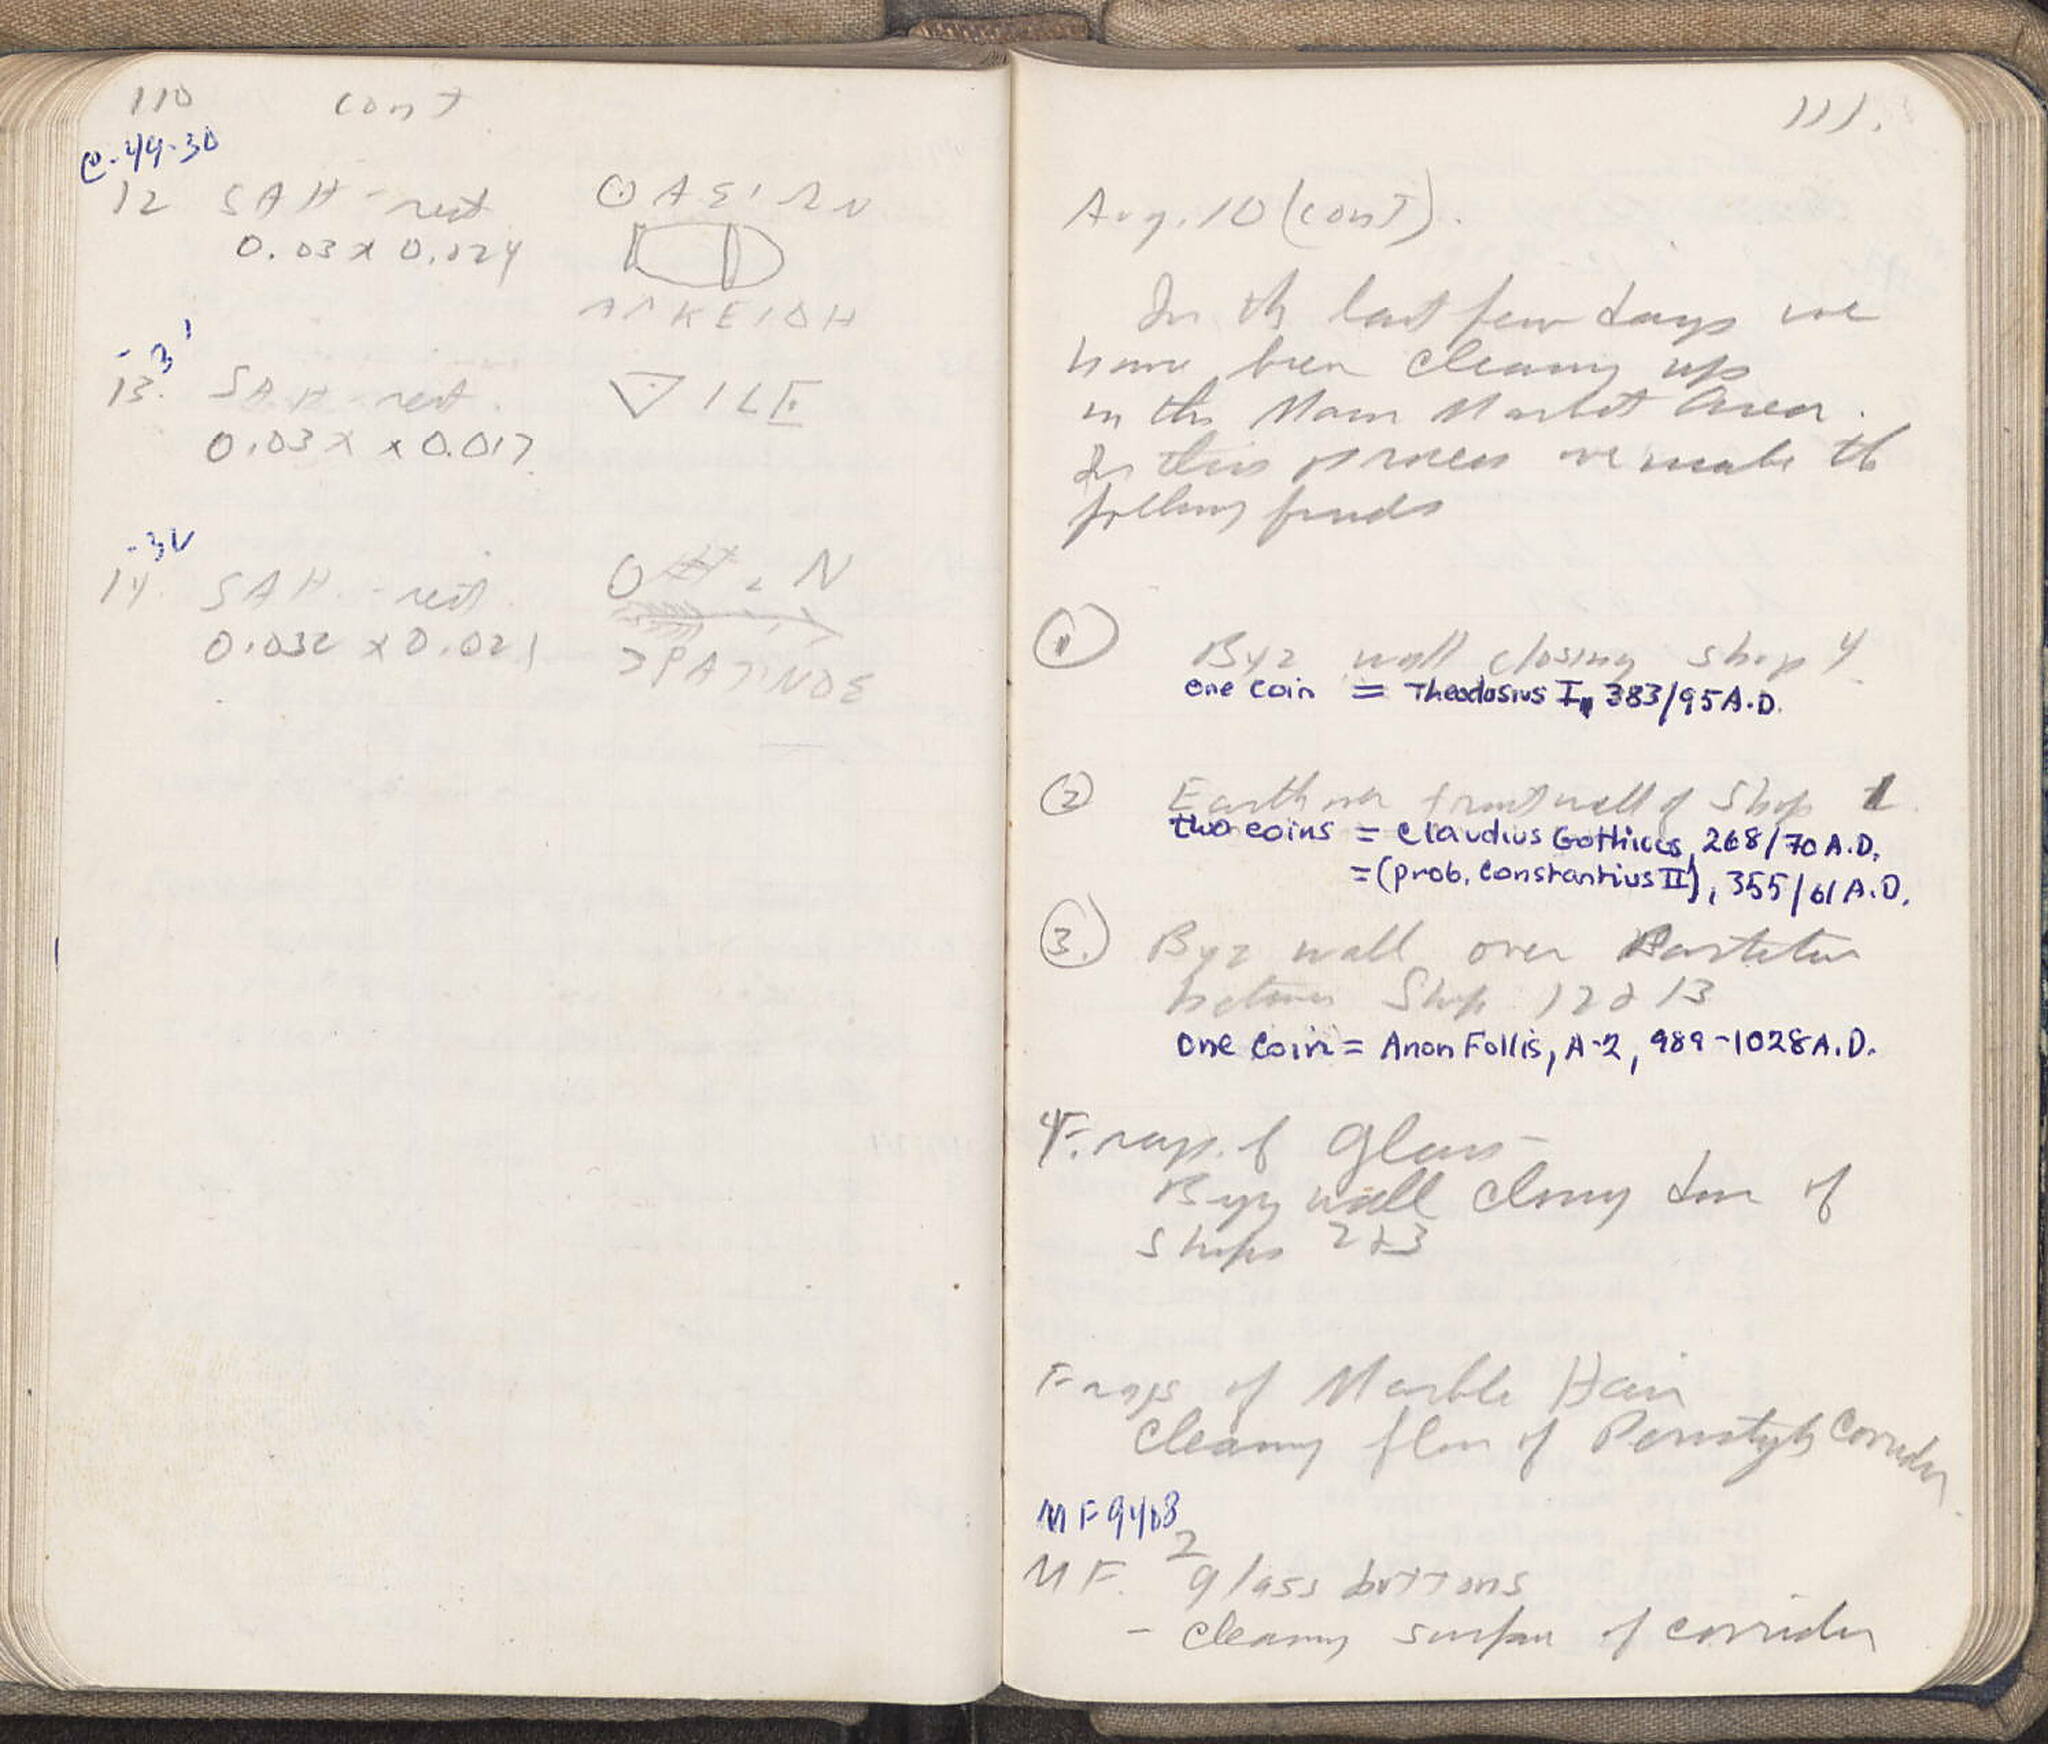 110 cont
C-49-30
12 SAH - rect ΘΑΣΙΩΝ
0.03 x 0.024
ΑΛΚΕΙΔΗ
-31
13. SAH - rect.
0.03 x 0.017
-32
14. SAH - rect
0.032 x 0.021
111.
Aug. 10 (cont).
In the last few days we
have been cleaning up
in the Main Market Area.
In this process we make the
following finds
1 Byz wall closing shop 4
one coin = Theodosius I, 383/95 A.D.
2 Earth over front wall of Shop 1
two coins = Claudius Gothicus, 268/70 A.D.
= (prob. Constantius II), 355/61 A.D.
3. Byz wall over Partition
between Shop 12 & 13
one coin = Anon Follis, A-2, 989-1028 A.D.
4 Frags. of glass -
Byz wall closing door of
Shops 2 & 3
Frags of Marble Hair
Cleaning floor of Peristyle Corridor
MF 9408
MF. 2 glass buttons
- Cleaning surface of corridor